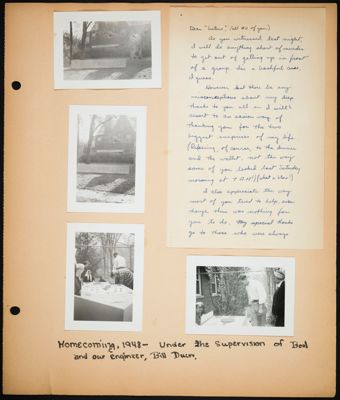 Dear "Sisters", (all 42 of you)
As you witnessed last night,
I will do anything short of murder
to get out of getting up in front
of a group. I'm a bashful cuss,
I guess.
However lest there be any
misconceptions about my deep
thanks to you all as I will
resort to an easier way of
thanking you for the two
biggest surprises of my life
(Referring, of course, to the dinner
and the wallet, not the way
some of you looked last Saturday
morning at
I also appreciate the way
most of you tried to help, even
though there was nothing for
you to do. My special thanks
go to those who were always
Homecoming, 1948 - Under the supervision of
and our engineer, Bill